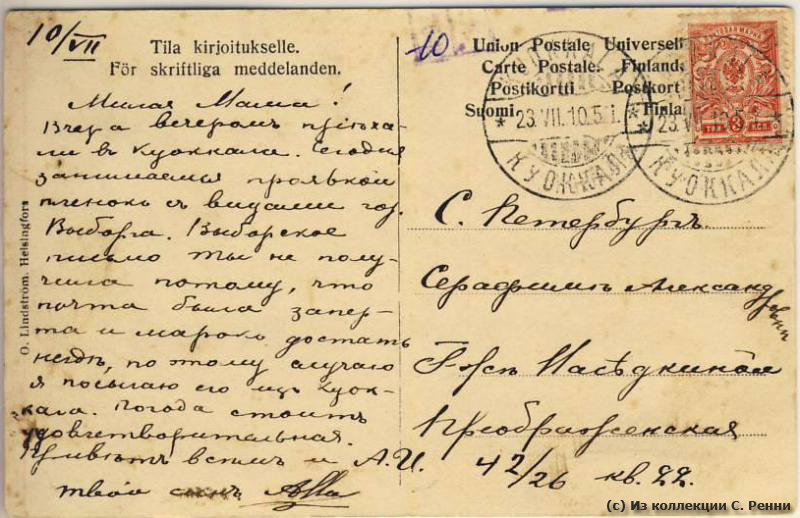 10/VII
Tila kirjoitukselle.
För skriftliga meddelanden.
Милая Мама!
Вчера вечером пріѣха-
ли въ Куоккала. Сегодня
занимаемся проявкой
пленокъ съ видами гор.
Выборга. Выборгское
письмо ты не полу-
чила потому, что
почта была запер-
та и марокъ достать
негдѣ, по этому случаю
я посылаю его изъ Куок-
кала. Погода стоитъ
удовлетворительная.
Привѣтъ всѣмъ и А.И.
твой сынъ
O. Lindström. Helsingfors
10
Union Postale Universell
Carte Postale. Finland
Postikortti Postkort
Suomi. Finla
23.VII.10.5
КУОККАЛА
КУОККАЛА
С. Петербургъ.
Серафимѣ Александ
ровнѣ
Г-жѣ Насѣдкиной
Преображенская
42/26 кв. 22.
(c) Из коллекции С. Ренни